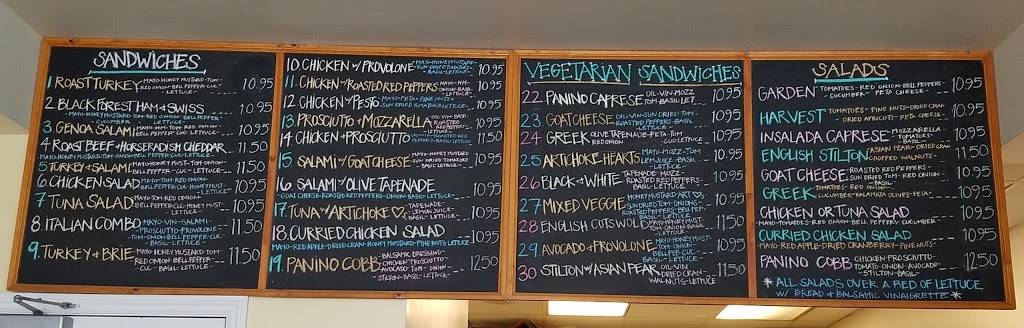 SANDWICHES
1. ROAST TURKEY MAYO-HONEY MUSTARD-TOM- 10.95
RED ONION-BELL PEPPER-CUC-
LETTUCE-
2. BLACK FOREST HAM & SWISS 10.95
MAYO-HONEY MUSTARD-TOM-RED ONION-BELL PEPPER-
CUC-LETTUCE-
3. GENOA SALAMI MAYO-HM-TOM-RED ONION- 10.95
BELL PEPPER-CUC-LETTUCE-
4. ROAST BEEF & HORSERADISH CHEDDAR 11.50
MAYO-HONEY MUSTARD-TOM-ONION-BELL PEPPER-CUC-LETTUCE-
5. TURKEY & SALAMI MAYO-HONEY MUST-TOM-ONION- 11.50
BELL PEPPER-CUC-LETTUCE-
6. CHICKEN SALAD MAYO-TOM-RED ONION- 10.95
BELL PEPPER-CUC-HONEY MUST-
LETTUCE-
7. TUNA SALAD MAYO-TOM-RED ONION- 10.95
BELL PEPPER-CUC-HONEY MUST-
LETTUCE-
8. ITALIAN COMBO MAYO-VIN-SALAMI- 11.50
PROSCIUTTO-PROVOLONE-
TOM-ONION-BELL PEPPER-CUC-
BASIL-LETTUCE-
9. TURKEY & BRIE MAYO-HONEY MUSTARD-TOM- 11.50
RED ONION-BELL PEPPER-
CUC-LETTUCE-
10 CHICKEN w/ PROVOLONE MAYO-HONEY MUSTARD- 10.95
SUN DRIED TOMATOES-
BASIL-LETTUCE-
11. CHICKEN w/ ROASTED RED PEPPERS MAYO-HM- 10.95
ONION-BASIL-
LETTUCE-
12 CHICKEN w/ PESTO MAYO-FETA-PINE NUTS- 10.95
SUN DRIED TOMATOES-LETTUCE-
13 PROSCIUTTO & MOZZARELLA OIL-VIN-BASIL- 10.95
ROASTED RED PEPPERS-
LETTUCE-
14 CHICKEN & PROSCIUTTO 11.50
RED PEPPERS-
BASIL-LETTUCE-
15 SALAMI w/ GOAT CHEESE MAYO-HONEY MUSTARD- 10.95
SUN DRIED TOMATOES-
BASIL-LETTUCE-
16 SALAMI w/ OLIVE TAPENADE 10.95
GOAT CHEESE-ROASTED RED PEPPERS-BASIL-LETTUCE-
17. TUNA w/ ARTICHOKE TAPENADE- 10.95
LEMON JUICE-
BASIL-LETTUCE-
18. CURRIED CHICKEN SALAD 10.95
MAYO-RED APPLE-DRIED CRAN-HONEY MUSTARD-PINE NUTS-LETTUCE-
19. PANINO COBB BALSAMIC DRESSING- 12.50
CHICKEN-PROSCIUTTO-
AVOCADO-TOM-ONION-
STILTON-BASIL-LETTUCE-
VEGETARIAN SANDWICHES
22 PANINO CAPRESE OIL-VIN-MOZZ- 10.95
TOM-BASIL-LET-
23 GOAT CHEESE OIL-VIN-SUN DRIED TOM- 10.95
ROASTED PEPPERS-BASIL-
LETTUCE-
24 GREEK OLIVE TAPENADE-FETA-TOM- 10.95
RED ONION-CUC-LETTUCE-
25 ARTICHOKE HEARTS MAYO-MOZZ-TOM- 10.95
LEM JUICE-BASIL-
LETTUCE-
26 BLACK & WHITE TAPENADE-MOZZ- 10.95
ROASTED RED PEPPERS-
BASIL-LETTUCE-
27 MIXED VEGGIE HONEY MUSTARD-ART- 10.95
SUN DRIED TOM-ONIONS-
ROASTED PEPPERS-BELL PEPPER-
BASIL-LETTUCE-
28 ENGLISH COTSWOLD MAYO-HONEY MUST- 11.50
TOM-ONION-BASIL-
LETTUCE-
29 AVOCADO & PROVOLONE MAYO-HONEY MUST- 10.95
TOM-ONION-
BELL PEPPER-CUC-
BASIL-LETTUCE-
30 STILTON w/ ASIAN PEAR OIL-VIN- 11.50
DRIED CRAN-
WALNUTS-LETTUCE-
SALADS
GARDEN TOMATOES-RED ONION-BELL PEPPERS- 10.95
CUCUMBER-FETA CHEESE-
HARVEST TOMATOES-PINE NUTS-DRIED CRAN- 10.95
DRIED APRICOTS-FETA CHEESE-
INSALADA CAPRESE MOZZARELLA- 10.95
TOMATOES-
BASIL-
ENGLISH STILTON ASIAN PEAR-DRIED CRAN- 11.50
CHOPPED WALNUTS-
GOAT CHEESE ROASTED RED PEPPERS- 10.95
SUN DRIED TOM-RED ONION-
BASIL
GREEK TOMATOES-RED ONION- 10.95
CUCUMBER-KALAMATA OLIVES-FETA-
CHICKEN OR TUNA SALAD 10.95
MAYO-TOMATOES-RED ONION-BELL PEPPERS-CUCUMBER-
CURRIED CHICKEN SALAD 10.95
MAYO-RED APPLE-DRIED CRANBERRY-PINE NUTS-
PANINO COBB CHICKEN-PROSCIUTTO- 12.50
TOMATO-ONION-AVOCADO-
STILTON-BASIL
*ALL SALADS OVER A BED OF LETTUCE
w/ BREAD & BALSAMIC VINAIGRETTE*